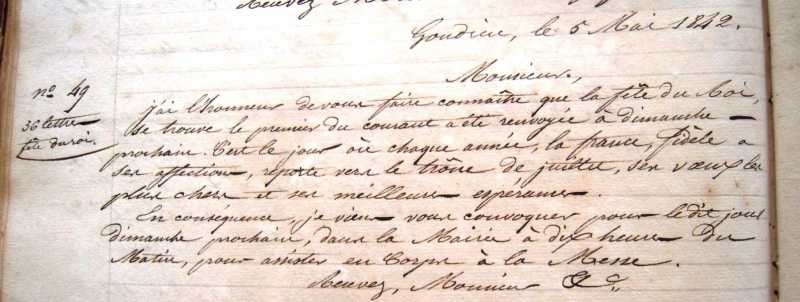 Recevez Mon
Goudieu, le 5 Mai 1842.
Monsieur,
n° 49
36 lettre
fête du roi.
j'ai l'honneur de vous faire connaître que la fête du Roi,
se trouve le premier du courant a été renvoyée à dimanche
prochain. C'est le jour où chaque année, la france, fidèle a
ses affections, reporte vers le trône de juillet, ses vœux les
plus chers et ses meilleures espérances.
En conséquence, je viens vous convoquer pour le dit jour
dimanche prochain, dans la Mairie à dix heures du
Matin, pour assister en Corps à la Messe.
Recevez, Monsieur &a